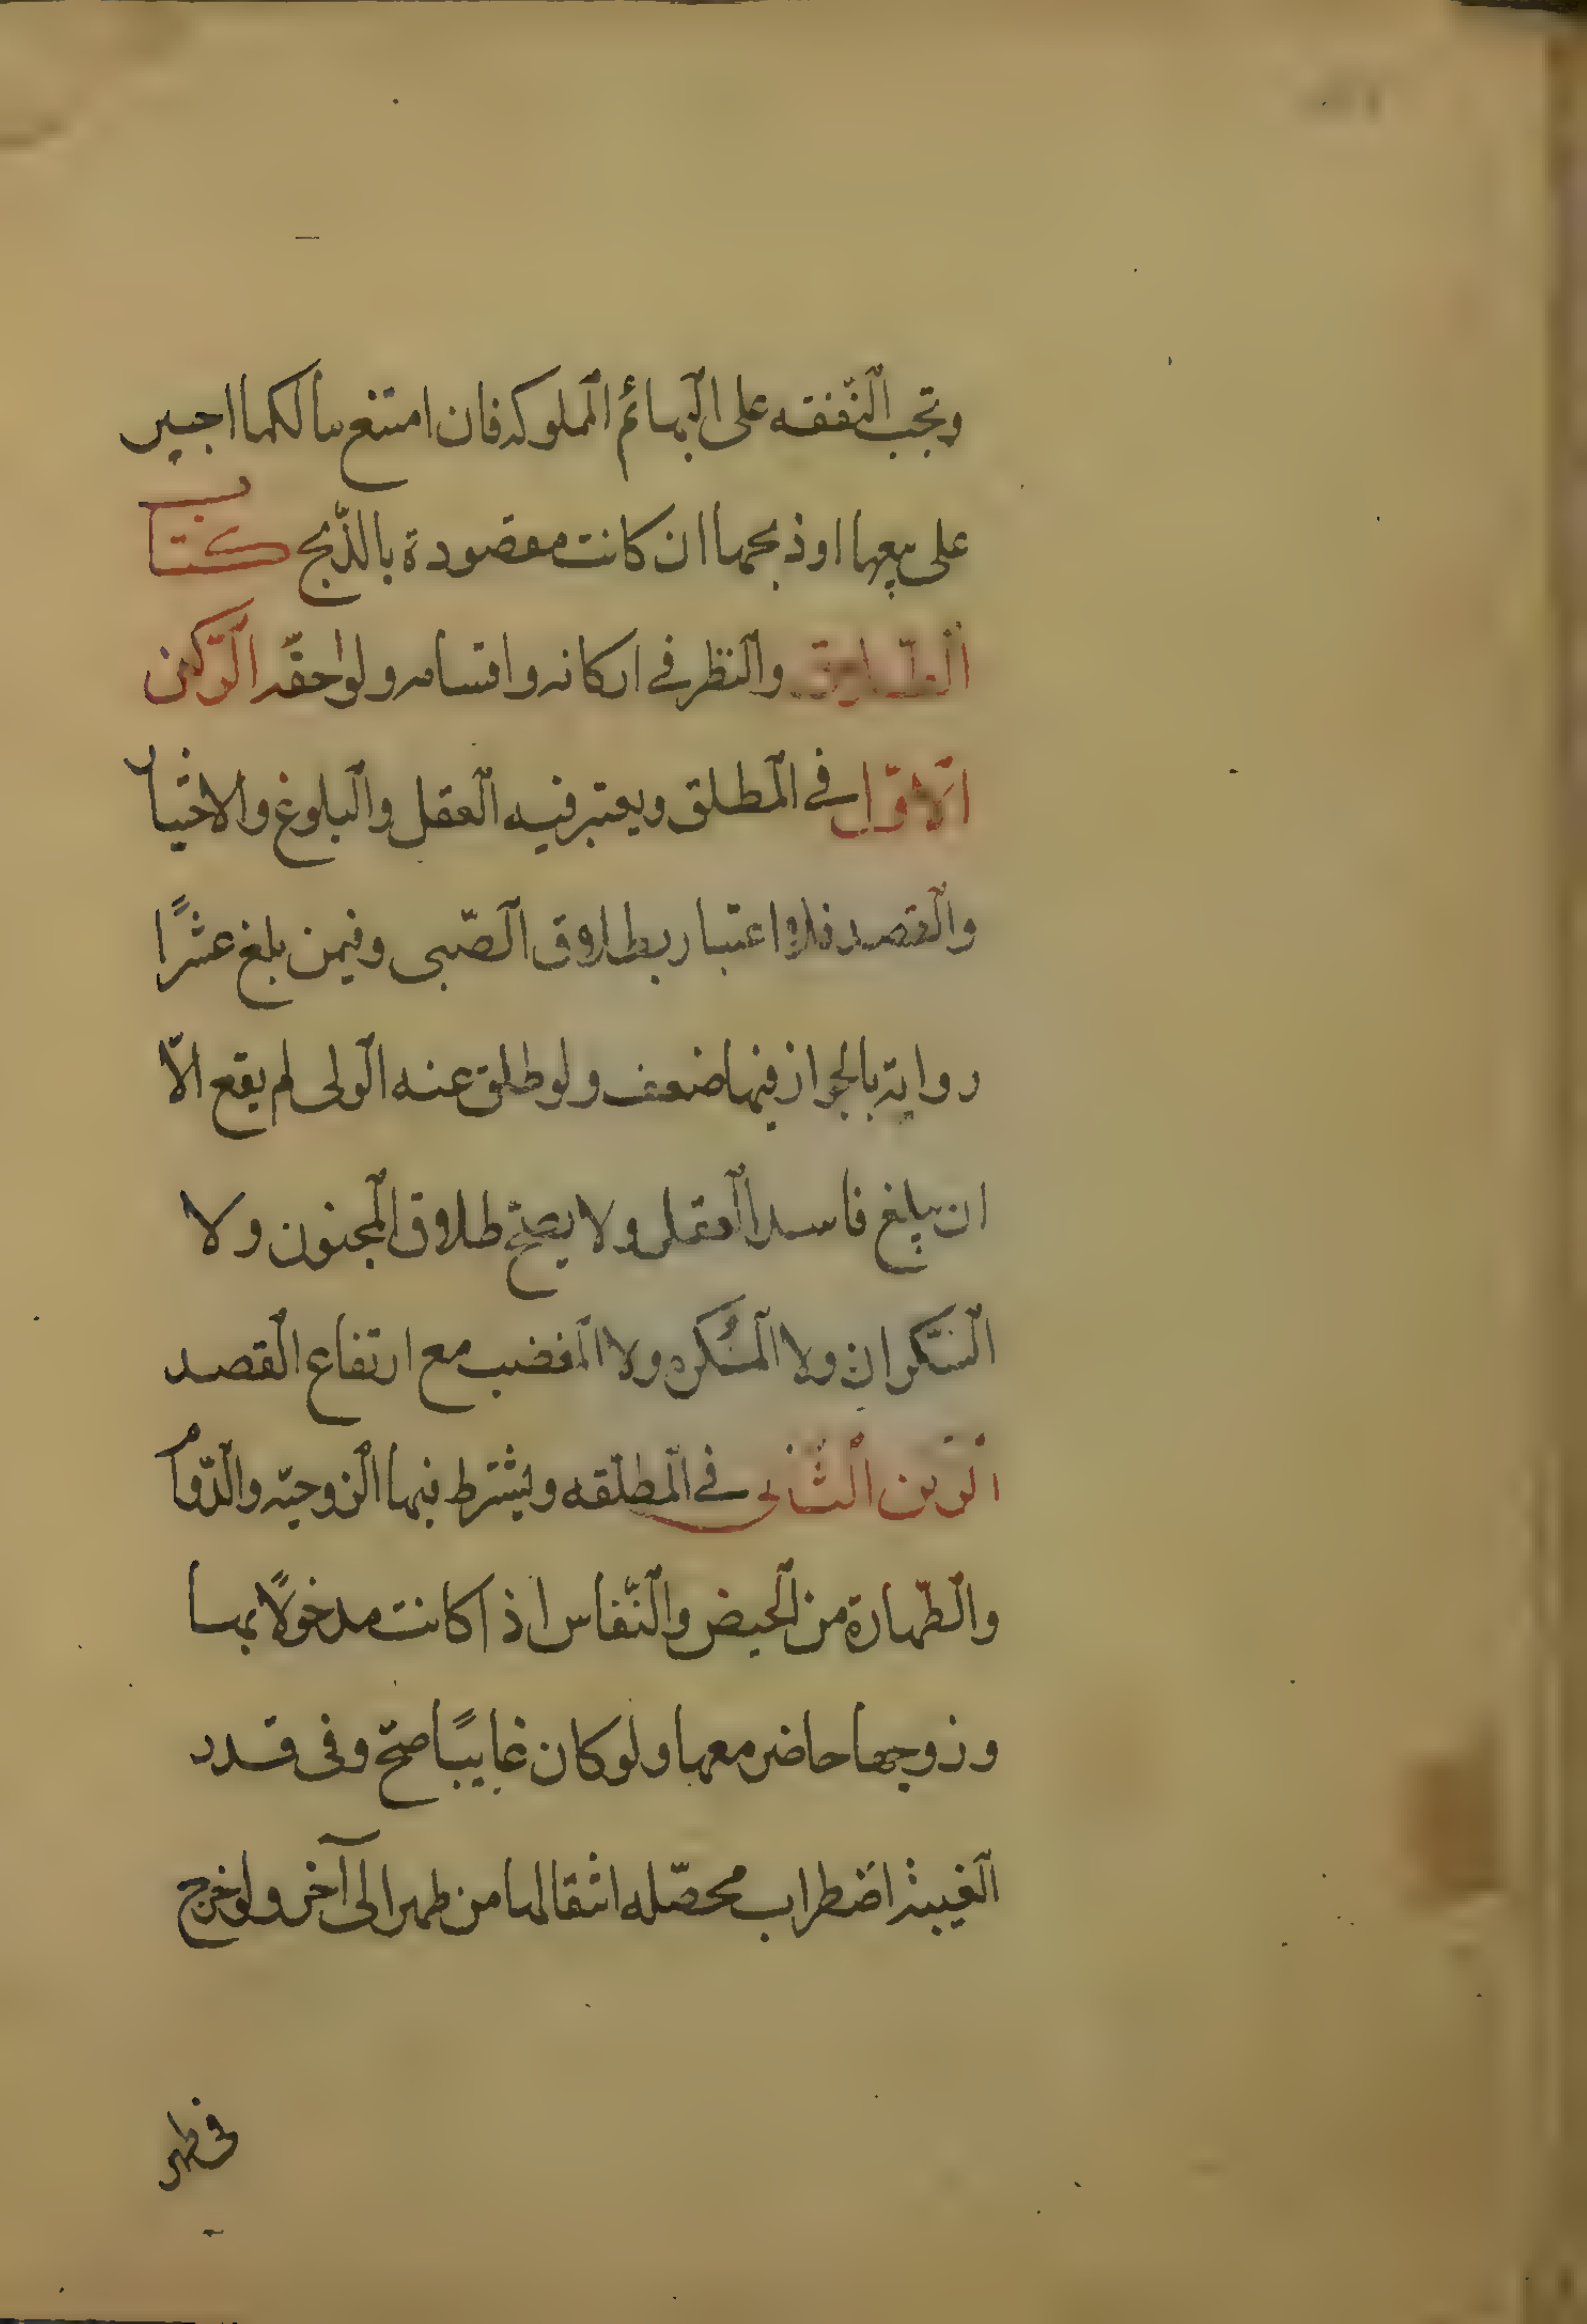 وتجب النّفقه على البهائم المملوكه فان امتنع مالكها اجبر
على بيعها او ذبحها ان كانت مقصودة بالذّبح كتاب
الطّلاق والنظر في اركانه واقسامه ولواحقه الرّكن
الاوّل في المطلق ويعتبر فيه العقل والبلوغ والاختيار
والقصد فلا اعتبار بطلاق الصّبى وفيمن بلغ عشرًا
رواية بالجواز فيها ضعف ولو طلق عنه الولى لم يقع الّا
ان يبلغ فاسد العقل ولا يصحّ طلاق المجنون ولا
السّكران ولا المُكره ولا المغضب مع ارتفاع القصد
الركن الثّانى في المطلّقه ويشترط فيها الزوجيّه والدّوام
والطّهارة من الحيض والنّفاس اذا كانت مدخولًا بها
وزوجها حاضر معها ولو كان غايبًا صحّ وفى قدر
الغيبة اضطراب محصّله انتقالها من طهر الى آخر ولو خرج
فى طهر